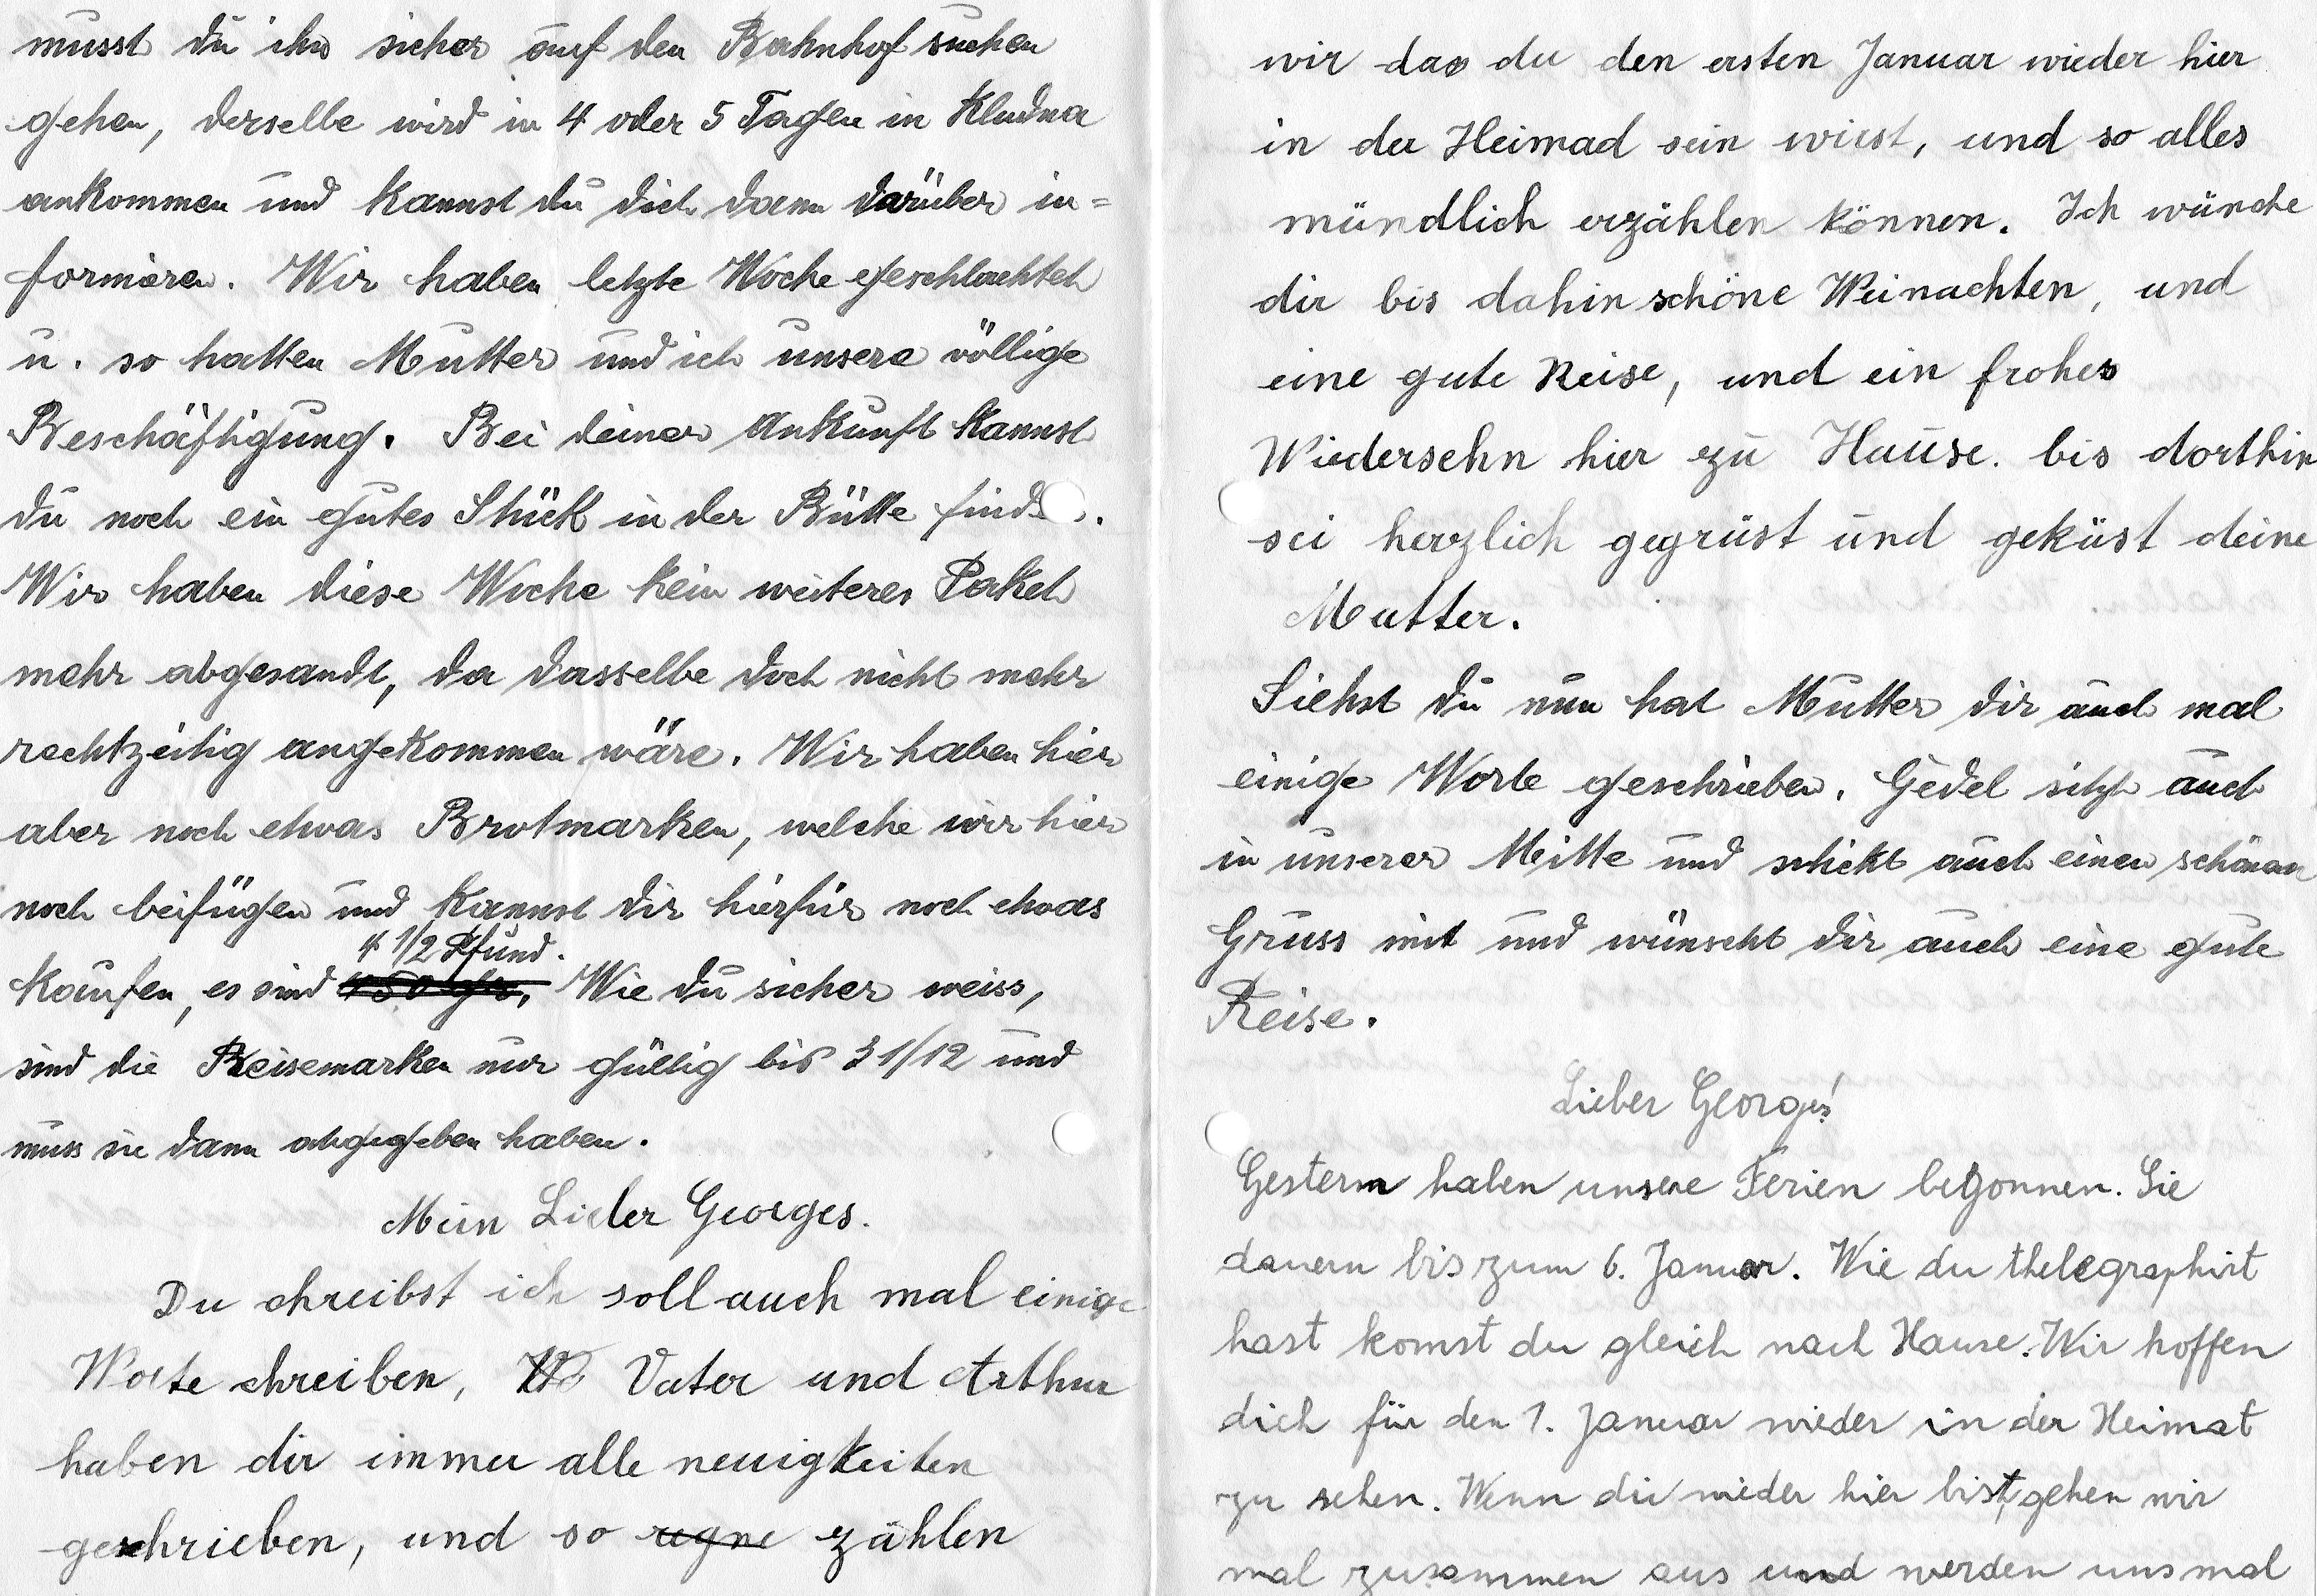 musst du ihn sicher auf den Bahnhof suchen
gehen, derselbe wird in 4 oder 5 Tagen in Kludna
ankommen und kannst du dich dann darüber in=
formieren. Wir haben letzte Woche geschlachtet
u. so hatten Mutter und ich unsere völlige
Beschäftigung. Bei deiner Ankunft kannst
du noch ein gutes Stück in der Bütte
Wir haben diese Woche kein weiteres Paket
mehr abgesandt, da dasselbe doch nicht mehr
rechtzeitig angekommen wäre. Wir haben hier
aber noch etwas Brotmarken, welche wir hier
noch beifügen und kannst dir hierfür noch etwas
4 1/2 Pfund.
kaufen, es sind Wie du sicher weiss,
sind die Reisemarken nur gültig bis 31/12 und
muss sie dann abgegeben haben.
Mein Lieber Georges.
Du chreibst ich soll auch mal einige
Worte chreiben, Vater und Arthur
haben dir immer alle neuigkeiten
geschrieben, und so regne zählen
wir das du den ersten Januar wieder hier
in der Heimad sein wirst, und so alles
mündlich erzählen können. Ich wünche
dir bis dahin schöne Weinachten, und
eine gute Reise, und ein frohes
Wiedersehn hier zu Hause. bis dorthin
sei herzlich gegrüst und geküst deine
Mutter.
Siehst du nun hat Mutter dir auch mal
einige Worte geschrieben. Gedel sitzt auch
in unserer Mitte und schickt auch einen schönen
Gruss mit und wünscht dir auch eine gute
Reise.
Lieber Georges!
Gestern haben unsere Ferien begonnen. Sie
dauern bis zum 6. Januar. Wie du thelegraphirt
hast komst du gleich nach Hause. Wir hoffen
dich für den 1. Januar wieder in der Heimat
zu sehen. Wenn du wieder hier bist, gehen wir
mal zusammen aus und werden uns mal